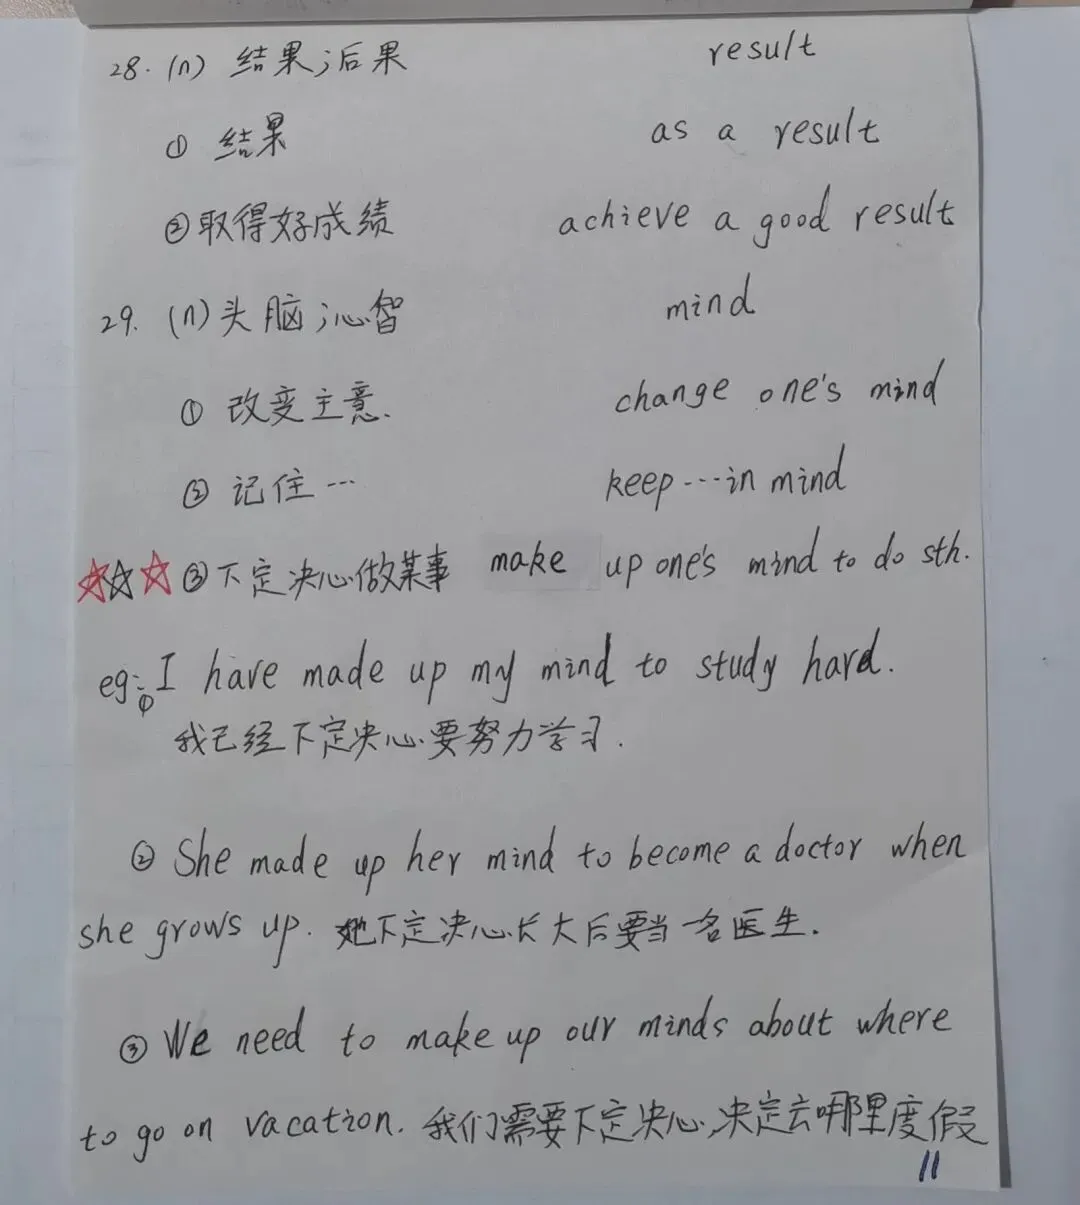 28. (n) 结果;后果 result
① 结果 as a result
②取得好成绩 achieve a good result
29. (n)头脑;心智 mind
① 改变主意. change one's mind
② 记住… keep…in mind
☆☆☆③下定决心做某事 make up one's mind to do sth.
eg:①I have made up my mind to study hard.
我已经下定决心要努力学习.
② She made up her mind to become a doctor when
she grows up. 她下定决心长大后要当一名医生.
③ We need to make up our minds about where
to go on vacation. 我们需要下定决心,决定去哪里度假
11